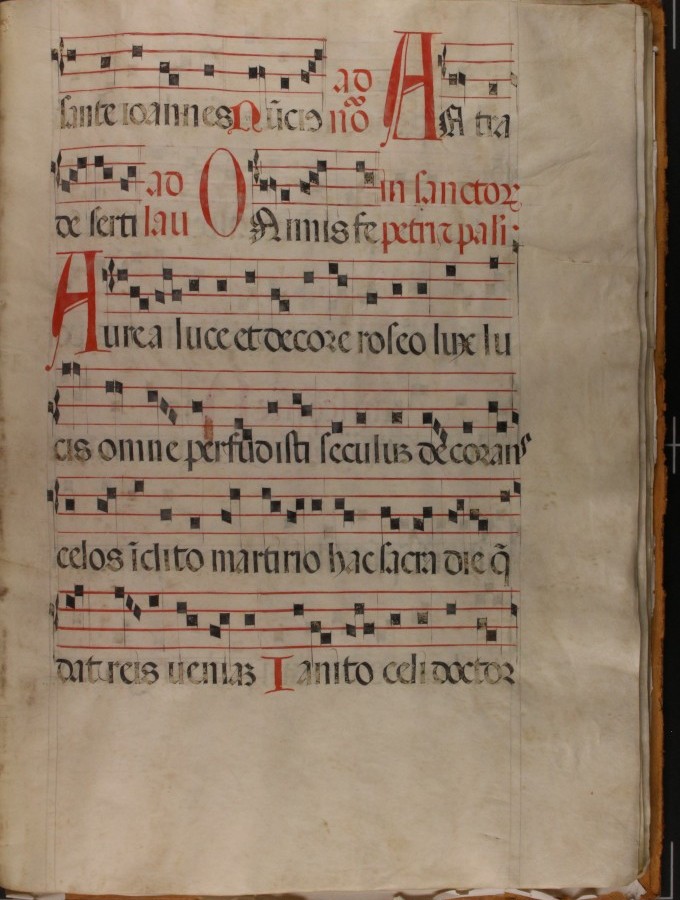 sancte ioannes Nũciỡ ad nõ A N tra
de serti ad lau O N imis fe in sanctoꝝ petri ⁊ pauli:
A urea luce et decore roseo lux lu
cis omne perfudisti seculuʒ decorans
celos ĩclito martirio hac sacra die q̃
dat reis ueniaʒ I anito celi doctor